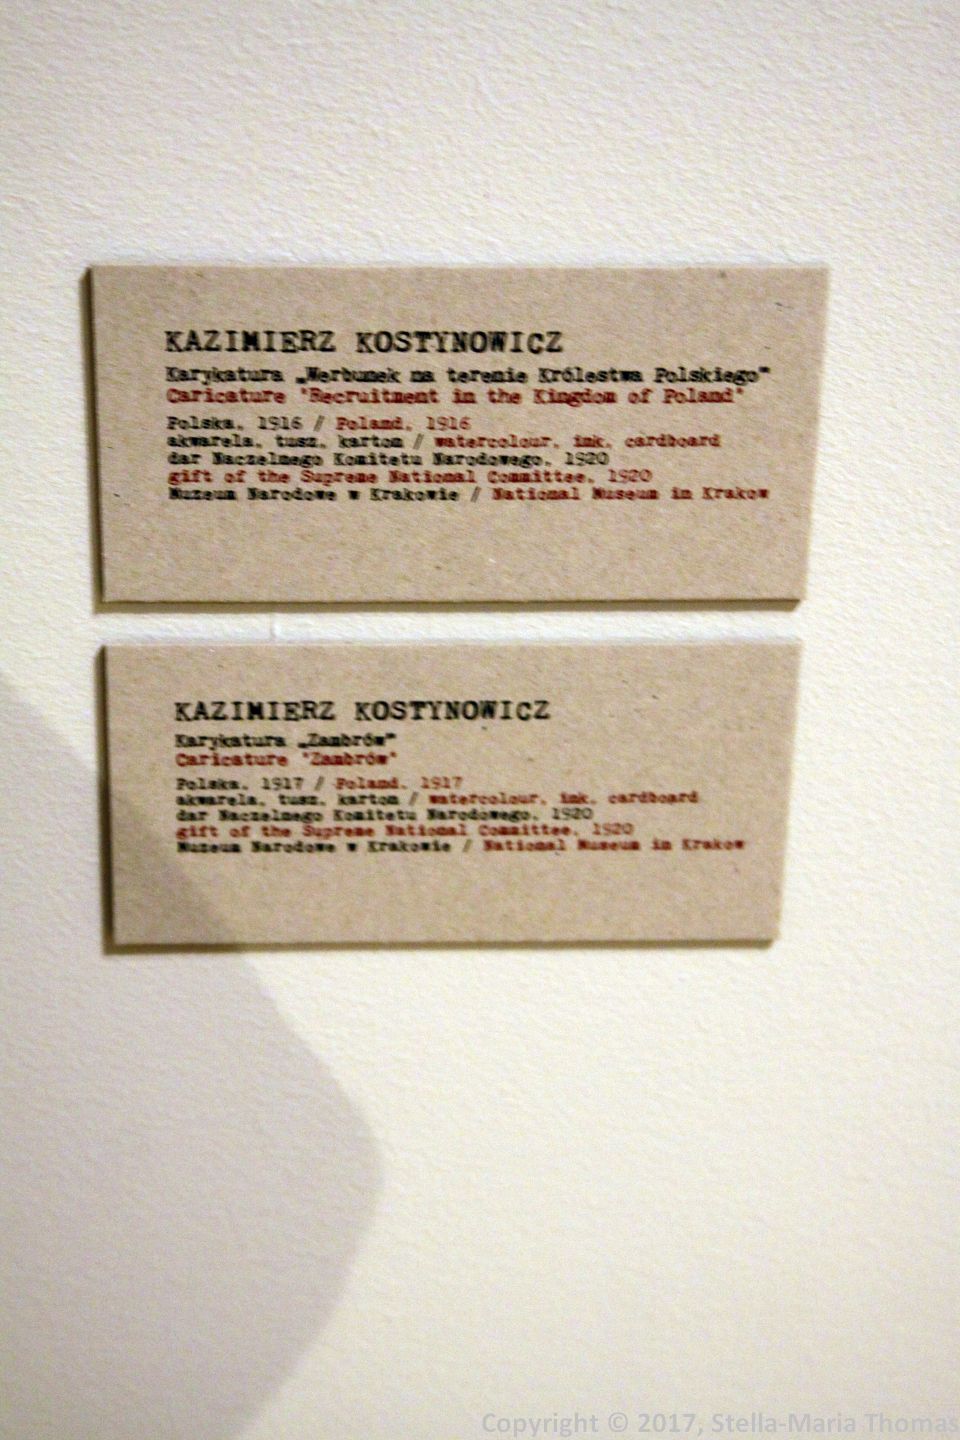 KAZIMIERZ KOSTYNOWICZ
Karykatura „Werbunek na terenie Królestwa Polskiego”
Caricature 'Recruitment in the Kingdom of Poland'
Polska, 1916 / Poland, 1916
akwarela, tusz, karton / watercolour, ink, cardboard
dar Naczelnego Komitetu Narodowego, 1920
gift of the Supreme National Committee, 1920
Muzeum Narodowe w Krakowie / National Museum in Krakow
KAZIMIERZ KOSTYNOWICZ
Karykatura „Zambrów”
Caricature 'Zambrów'
Polska, 1917 / Poland, 1917
akwarela, tusz, karton / watercolour, ink, cardboard
dar Naczelnego Komitetu Narodowego, 1920
gift of the Supreme National Committee, 1920
Muzeum Narodowe w Krakowie / National Museum in Krakow
Copyright © 2017, Stella-Maria Thomas